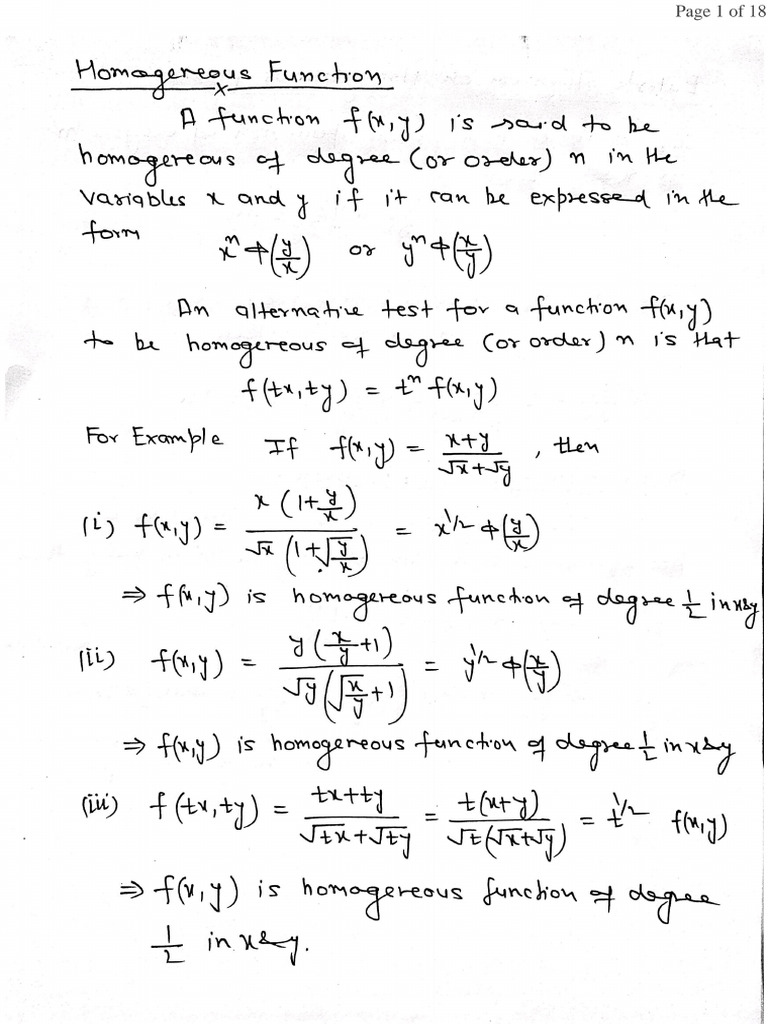 Page 1 of 18
Homogeneous Function
x
A function f(x,y) is said to be
homogeneous of degree (or order) n in the
variables x and y if it can be expressed in the
form xⁿ ϕ(y/x) or yⁿ ϕ(x/y)
An alternative test for a function f(x,y)
to be homogeneous of degree (or order) n is that
f(tx,ty) = tⁿ f(x,y)
For Example If f(x,y) = (x+y)/(√x+√y), then
(i) f(x,y) = x(1+y/x)/(√x(1+√(y/x))) = x^1/2 ϕ(y/x)
⇒ f(x,y) is homogeneous function of degree 1/2 in x&y
(ii) f(x,y) = y(x/y+1)/(√y(√(x/y)+1)) = y^1/2 ϕ(x/y)
⇒ f(x,y) is homogeneous function of degree 1/2 in x&y
(iii) f(tx,ty) = (tx+ty)/(√tx+√ty) = t(x+y)/(√t(√x+√y)) = t^1/2 f(x,y)
⇒ f(x,y) is homogeneous function of degree
1/2 in x&y.